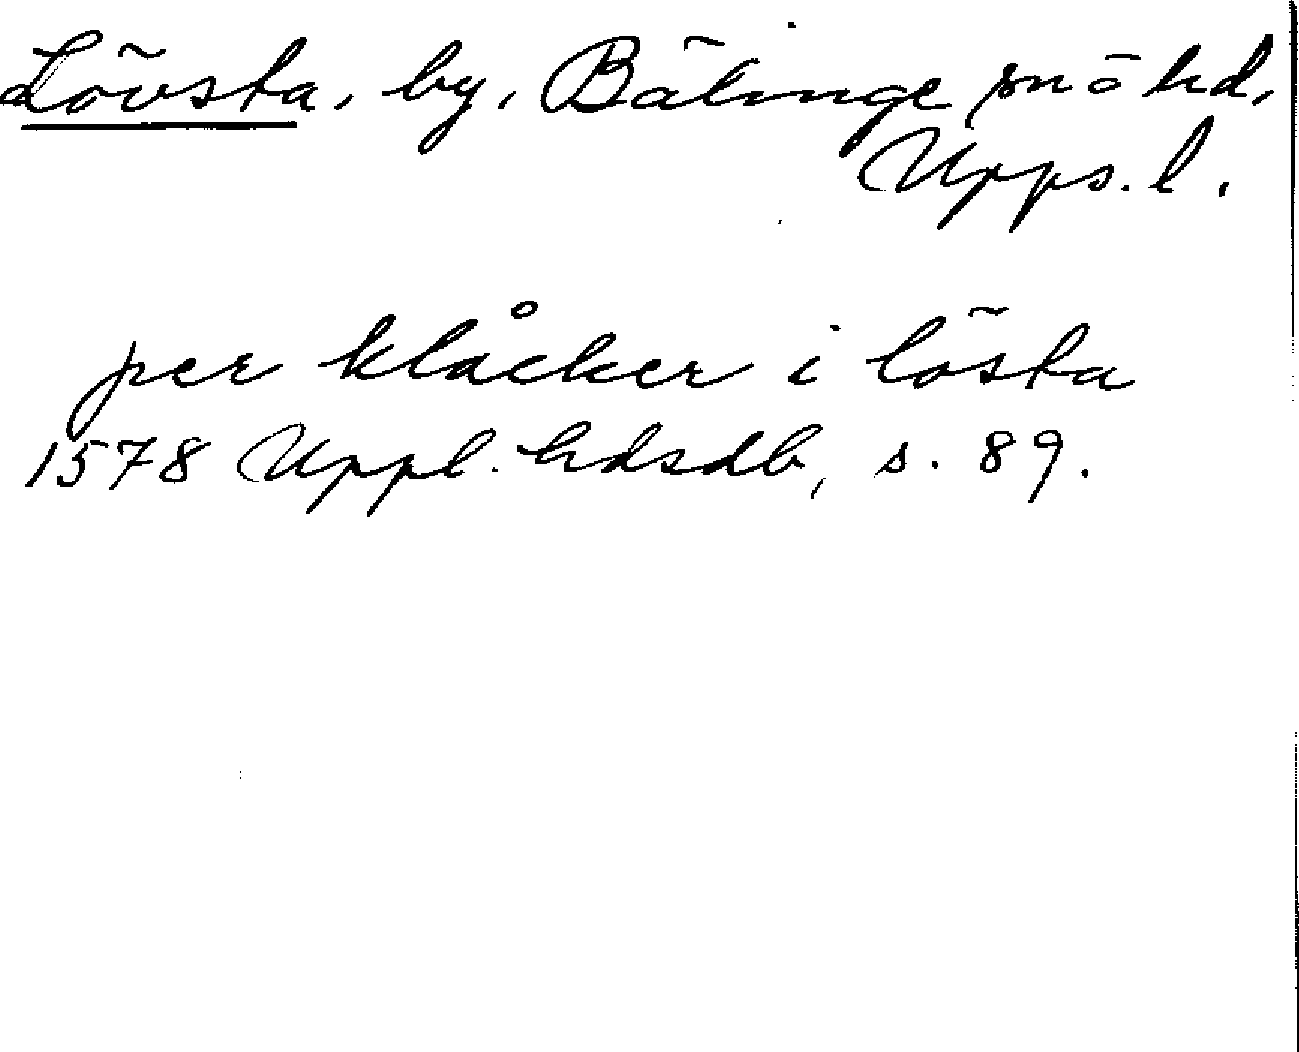 Lövsta, by, Bälinge sn o hd,
Upps. l.
per klåcker i lösta
1578 Uppl. hdsdb, s. 89.